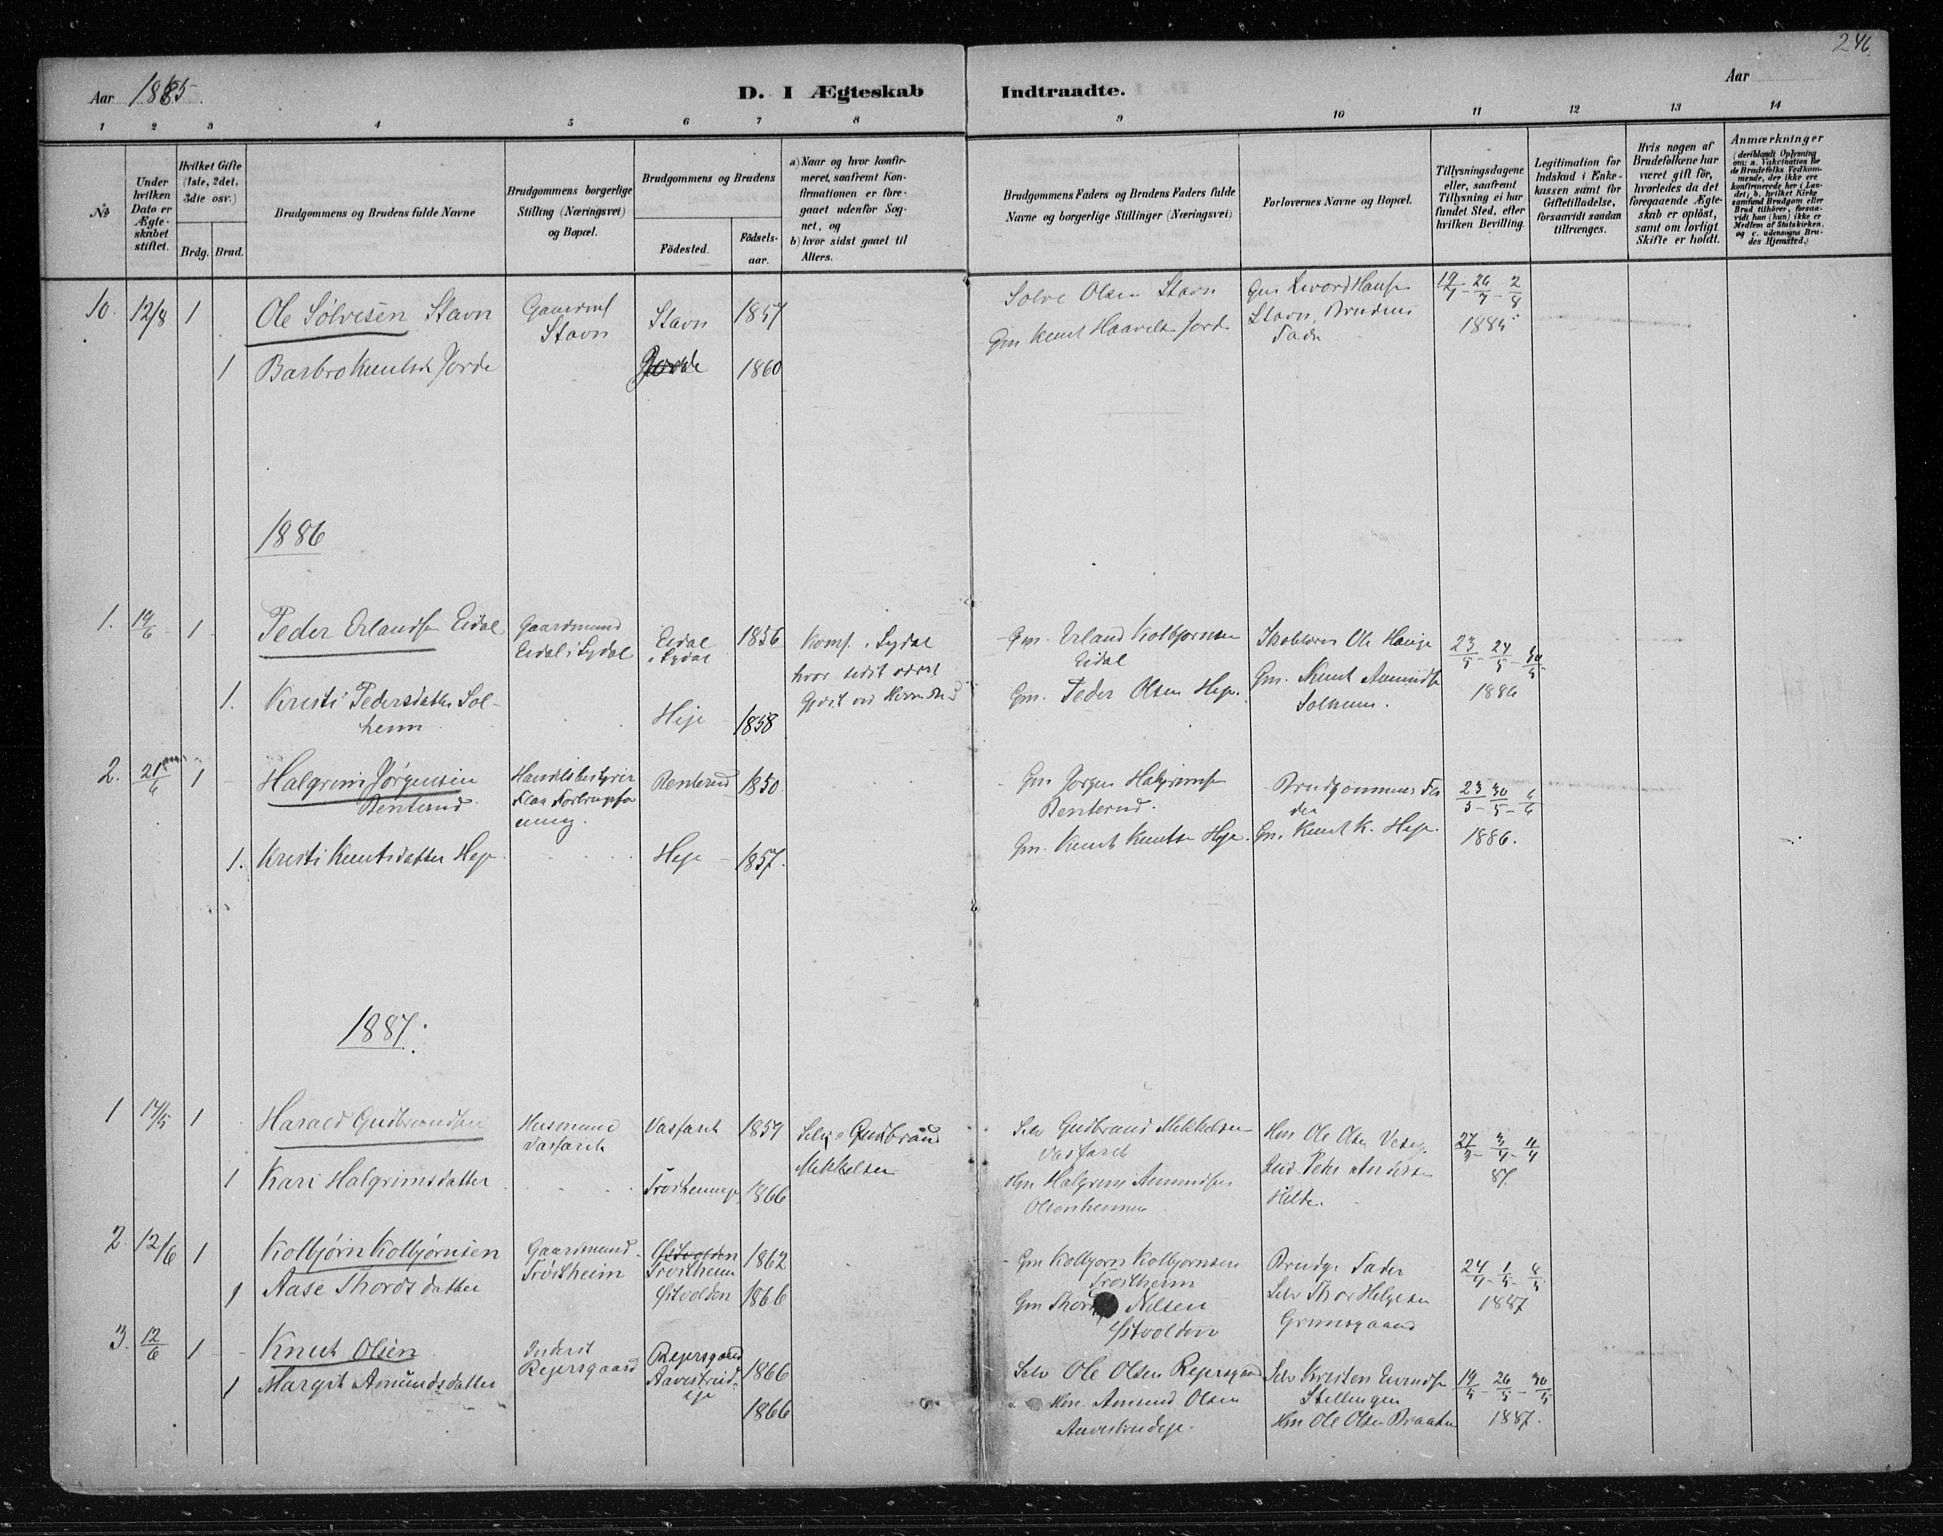 246.
Aar 1885.
D. I Ægteskab Indtraadte.
Aar
1 2 3 4 5 6 7 8 9 10 11 12 13 14
No
Under hvilken Dato er Ægteskabet stiftet.
Hvilket Gifte (1ste, 2det, 3die osv.)
Brdg. Brud.
Brudgommens og Brudens fulde Navne
Brudgommens borgerlige Stilling (Næringsvei) og Bopæl.
Brudgommens og Brudens
Födested. Födselsaar.
a) Naar og hvor konfirmeret, saafremt Konfirmationen er foregaaet udenfor Sognet, og
b) hvor sidst gaaet til Alters.
Brudgommens Faders og Brudens Faders fulde Navne og borgerlige Stillinger (Næringsvei)
Forlovernes Navne og Bopæl.
Tillysningsdagene eller, saafremt Tillysning ei har fundet Sted, efter hvilken Bevilling.
Legitimation for Indskud i Enkekassen samt for Giftetilladelse, forsaavidt saadan tiltrænges.
Hvis nogen af Brudefolkene har været gift før, hvorledes da det foregaaende Ægteskab er opløst, samt om lovligt Skifte er holdt.
Anmærkninger (deriblandt Oplysning om: a. Vakcination for de Brudefolks Vedkommende, der ikke ere konfirmerede her i Landet; b. hvilket Kirkesamfund Brudgom eller Brud tilhörer, forsaavidt han (hun) ikke er Medlem af Statskirken, og c. udensogns Brudes Hjemsted.)
10. 12/8 1 Ole Sölvesen Stavn
Stavn
Stavn 1857
Sølve Olsen Stavn
Stavn, Brudens Fader
19/7 - 26/7 - 2/8 1885
1 Barbro Knutsd. Jorde
Jorde 1860
Gm Knut Haavels. Jorde
1886
1. 1 Peder Erlandsen Eidal
Gaardmand Eidal i Sigdal
Eidal i Sigdal 1856
Konf. i Sigdal
Gm. Erland Kolbjørnsen Eidal
Ole Hauge
23/5 - 24/5 - 30/5 1886
1. Kristi Pedersdatter Solheim
Heje 1858
Gm. Peder Olsen Heje.
Gm. Knut Amundsen Solheim.
2. 21/6 1 Halgrim Jørgensen Benterud
Handelsbestyrer Flaa
Benterud 1850
Gm Jørgen Halgrimsen Benterud.
Brudgommens Fader
23/5 - 30/5 - 6/6 1886.
1. Kristi Knutsdatter Heje
Heje 1857.
Gm. Knut Knutsen Heje.
Gm. Knut K. Heje.
1887.
1 17/5 1 Harald Gudbrandsen
Husmand Vasfaret
Vasfaret 1859
Selv. Gudbrand Mikkelsen
Selv Gudbrand Mikkelsen Vasfaret
Hm Ole Olsen
27/3 - 3/4 - 11/4 87.
1 Kari Halgrimsdatter
1866
Hm Halgrim Amundsen
Peder Andersen
2 12/6 1 Kolbjörn Kolbjörnsen
Gaardmand Tröstheim
Östvolden Tröstheim 1862
Gm Kolbjørn Kolbjørnsen Trøstheim
Brudg. Fader
24/4 - 1/5 - 8/5 1887
1 Aase Thordsdatter
Östvolden 1866
Gm Thord Nilsen Østvolden
Selv Thor Helgesen Grimsgaard
3. 12/6 1 Knut Olsen
Inderst Rejersgaard
Rejersgaard 1866
Selv Ole Olsen Rejersgaard
Selv Kristen Evensen Stellingen
19/5 - 26/5 - 30/5 1887.
1 Margit Amundsdatter
Aavestrudeje 1866
Hm. Amund Olsen Aavestrudeje.
Hm Ole Olsen Braaten